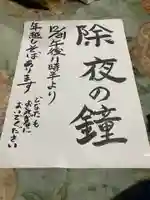 除夜の鐘
12/31午後11時半より
年越しそばあります
どなたも
お気軽に
おいでください